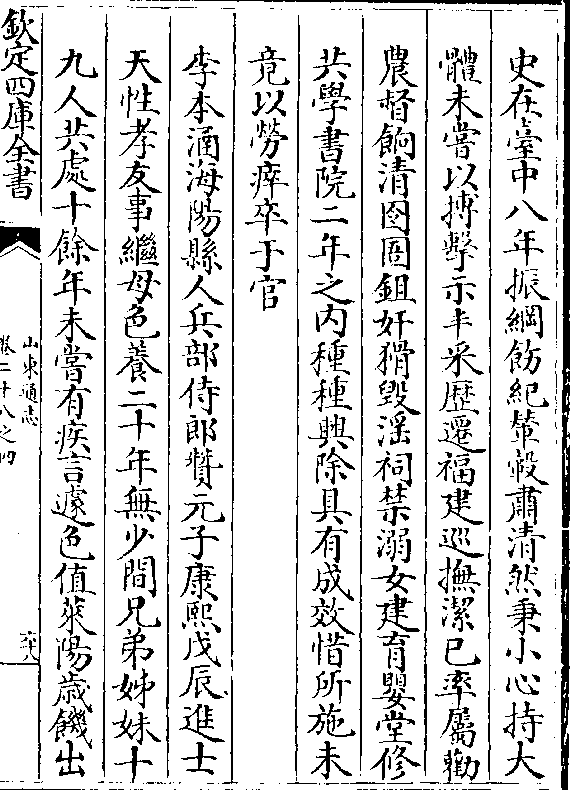 史在臺中八年振綱飭紀輦轂肅清然秉小心持大
體未嘗以搏擊示丰采歷遷福建巡撫潔已率屬勸
農督餉清囹圄鉏奸猾毀滛祠禁溺女建育嬰堂修
共學書院二年之内種種興除具有成效惜所施未
竟以勞瘁卒于官
李本涵海陽縣人兵部侍郎贊元子康熙戊辰進士
天性孝友事繼母色養二十年無少間兄弟姊妹十
九人共處十餘年未嘗有疾言遽色值萊陽歲饑出
欽定四庫全書
山東通志
卷二十八之四
六十八